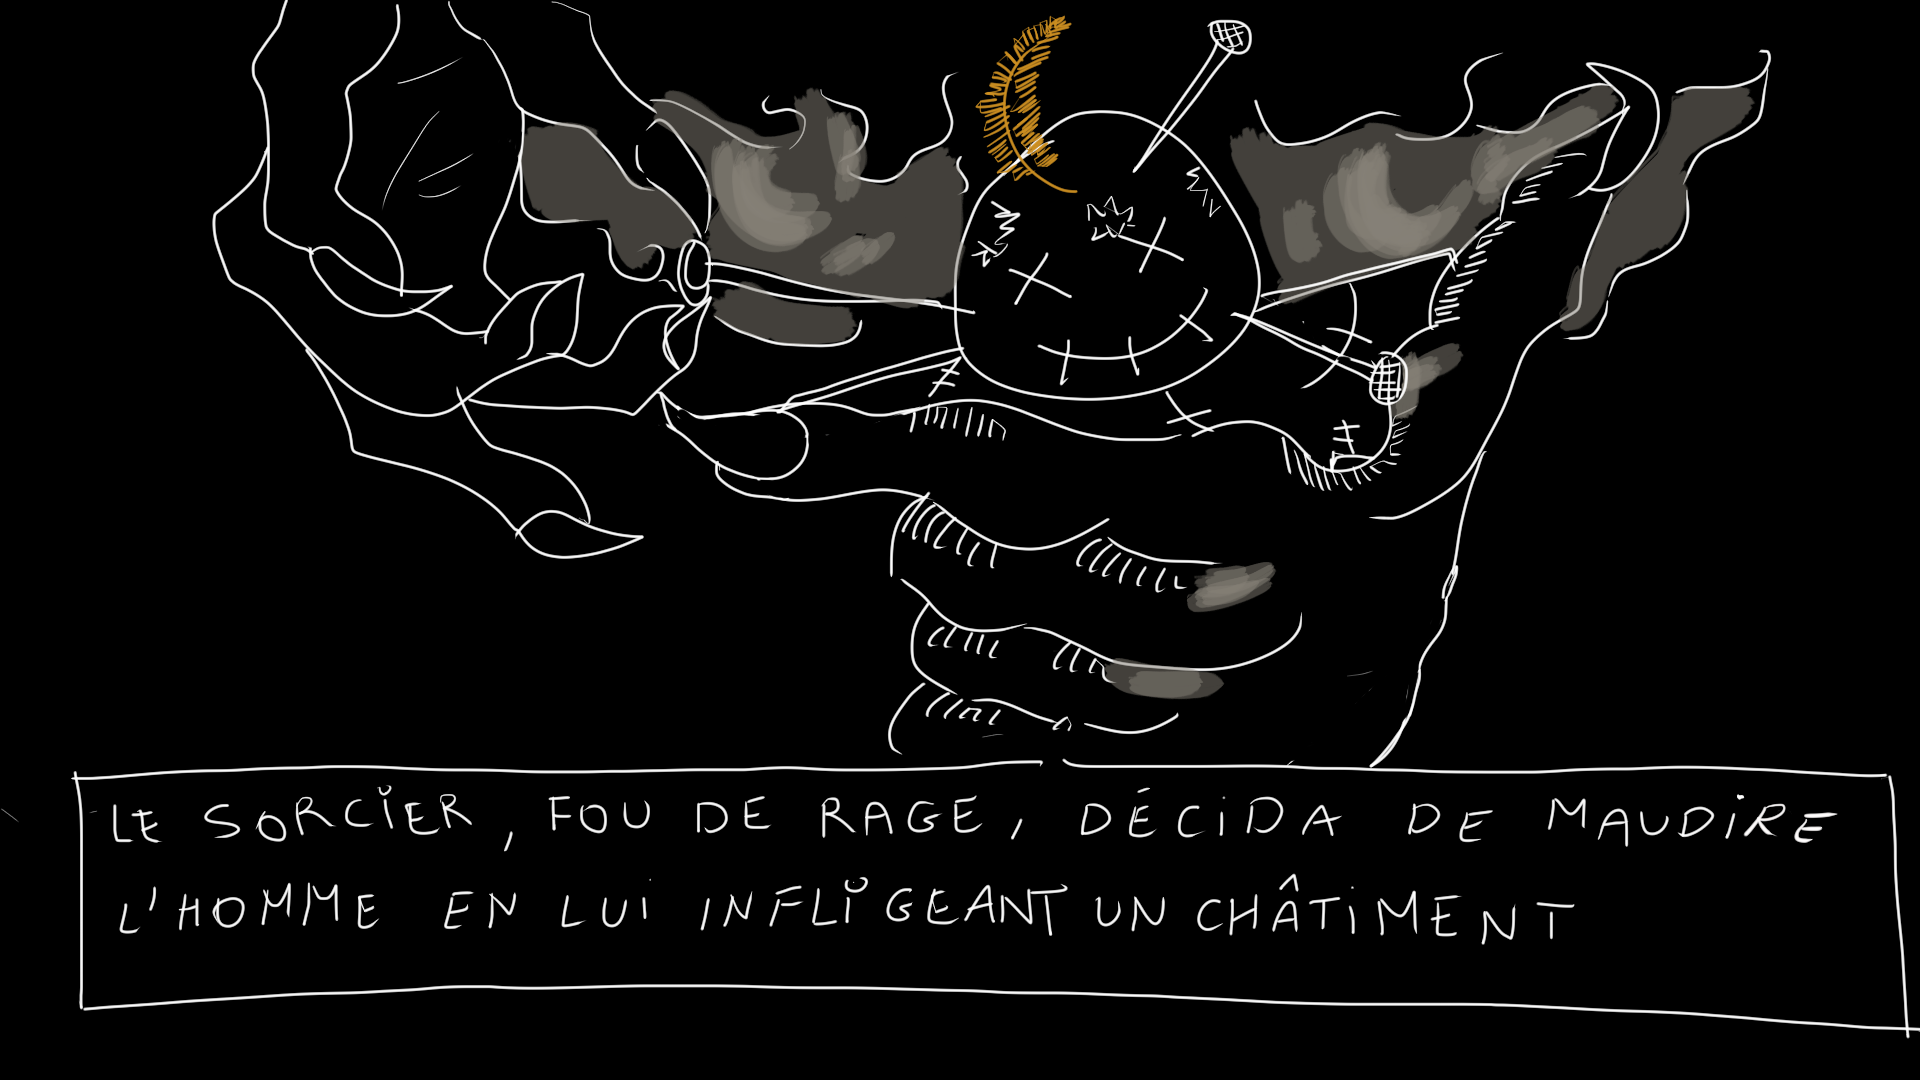 LE SORCIER, FOU DE RAGE, DÉCIDA DE MAUDIRE
L'HOMME EN LUI INFLIGEANT UN CHÂTIMENT